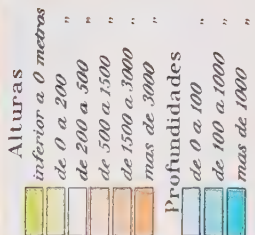 Alturas
inferior a 0 metros
de 0 a 200 "
de 200 a 500 "
de 500 a 1500 "
de 1500 a 3000 "
mas de 3000 "
Profundidades
de 0 a 100 "
de 100 a 1000 "
mas de 1000 "